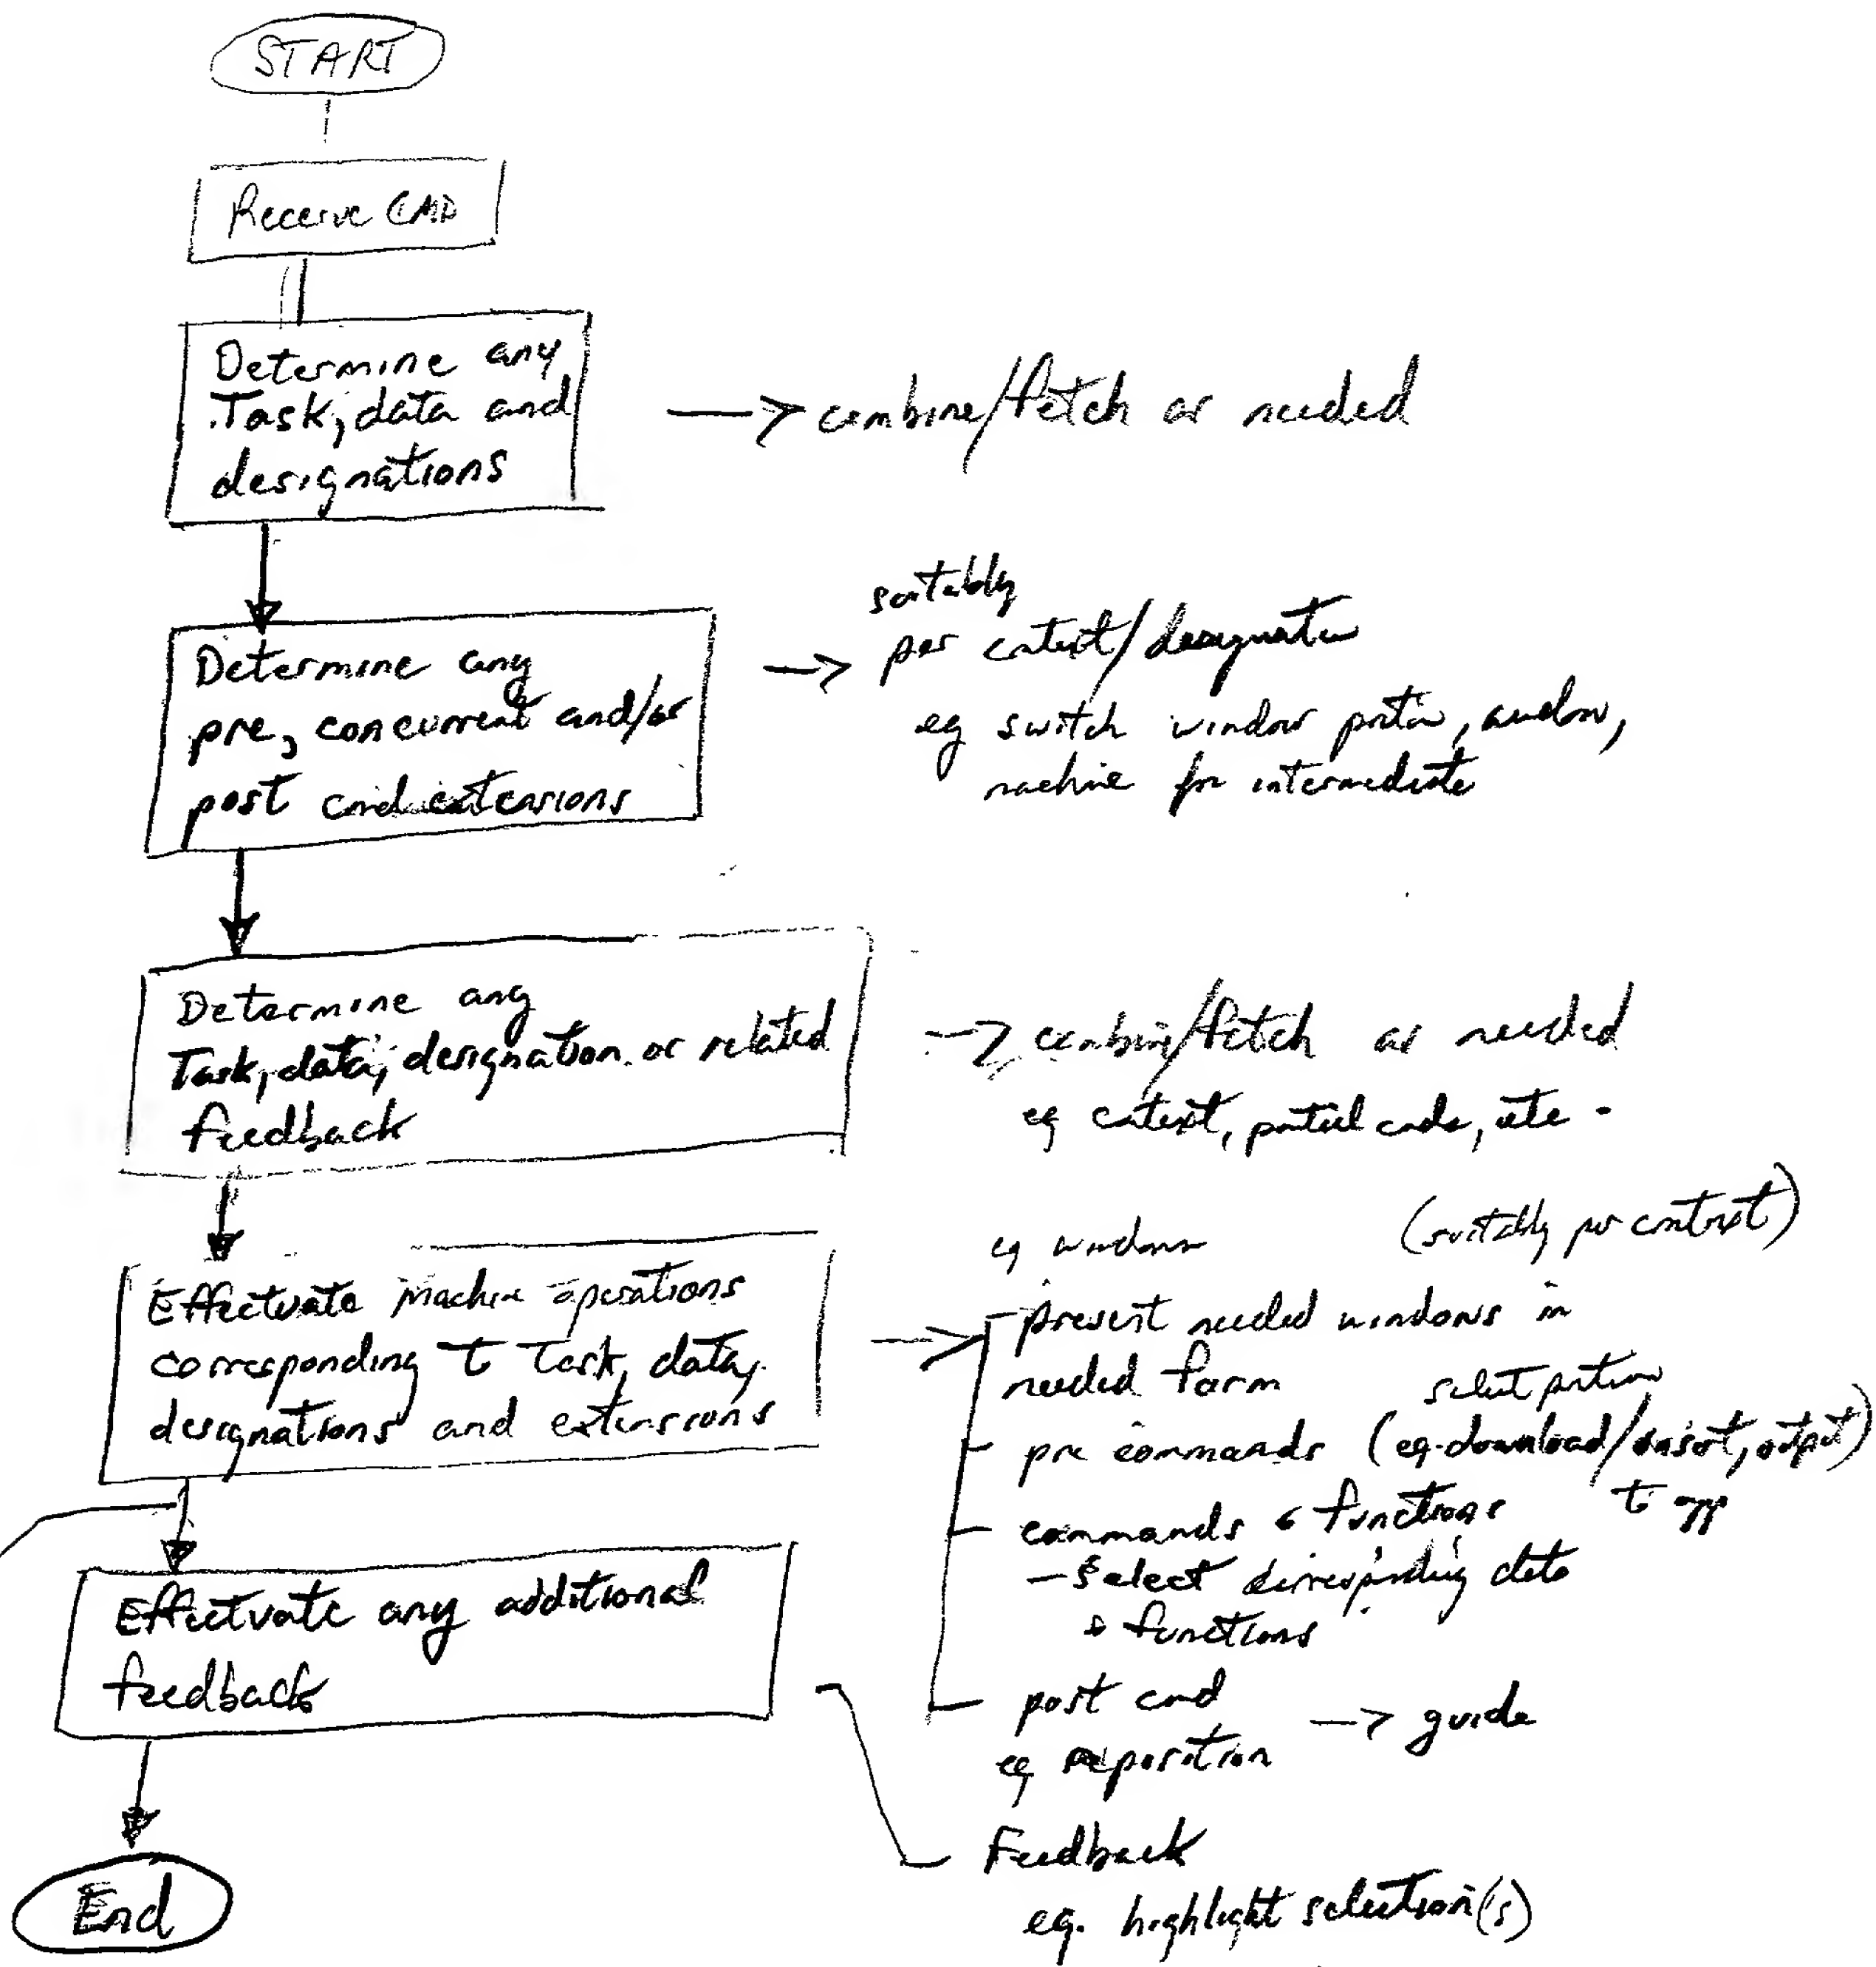 START
Receive CMD
Determine any
Task, data and
designations
combine/fetch as needed
Determine any
pre, concurrent and/or
post cmd extensions
suitably
per context/designation
eg switch window portion, window,
machine for intermediate
Determine any
Task, data, designation or related
feedback
combine/fetch as needed
eg context, partial cmds, etc.
Effectuate Machine operations
corresponding to task, data,
designations and extensions
eg windows (suitably per context)
- present needed windows in
needed form select portion
- pre commands (eg. download/insert, output)
to app
- commands & functions
- select corresponding data
& functions
- post cmd
eg reposition → guide
Effectuate any additional
feedback
Feedback
eg. highlight selection(s)
End